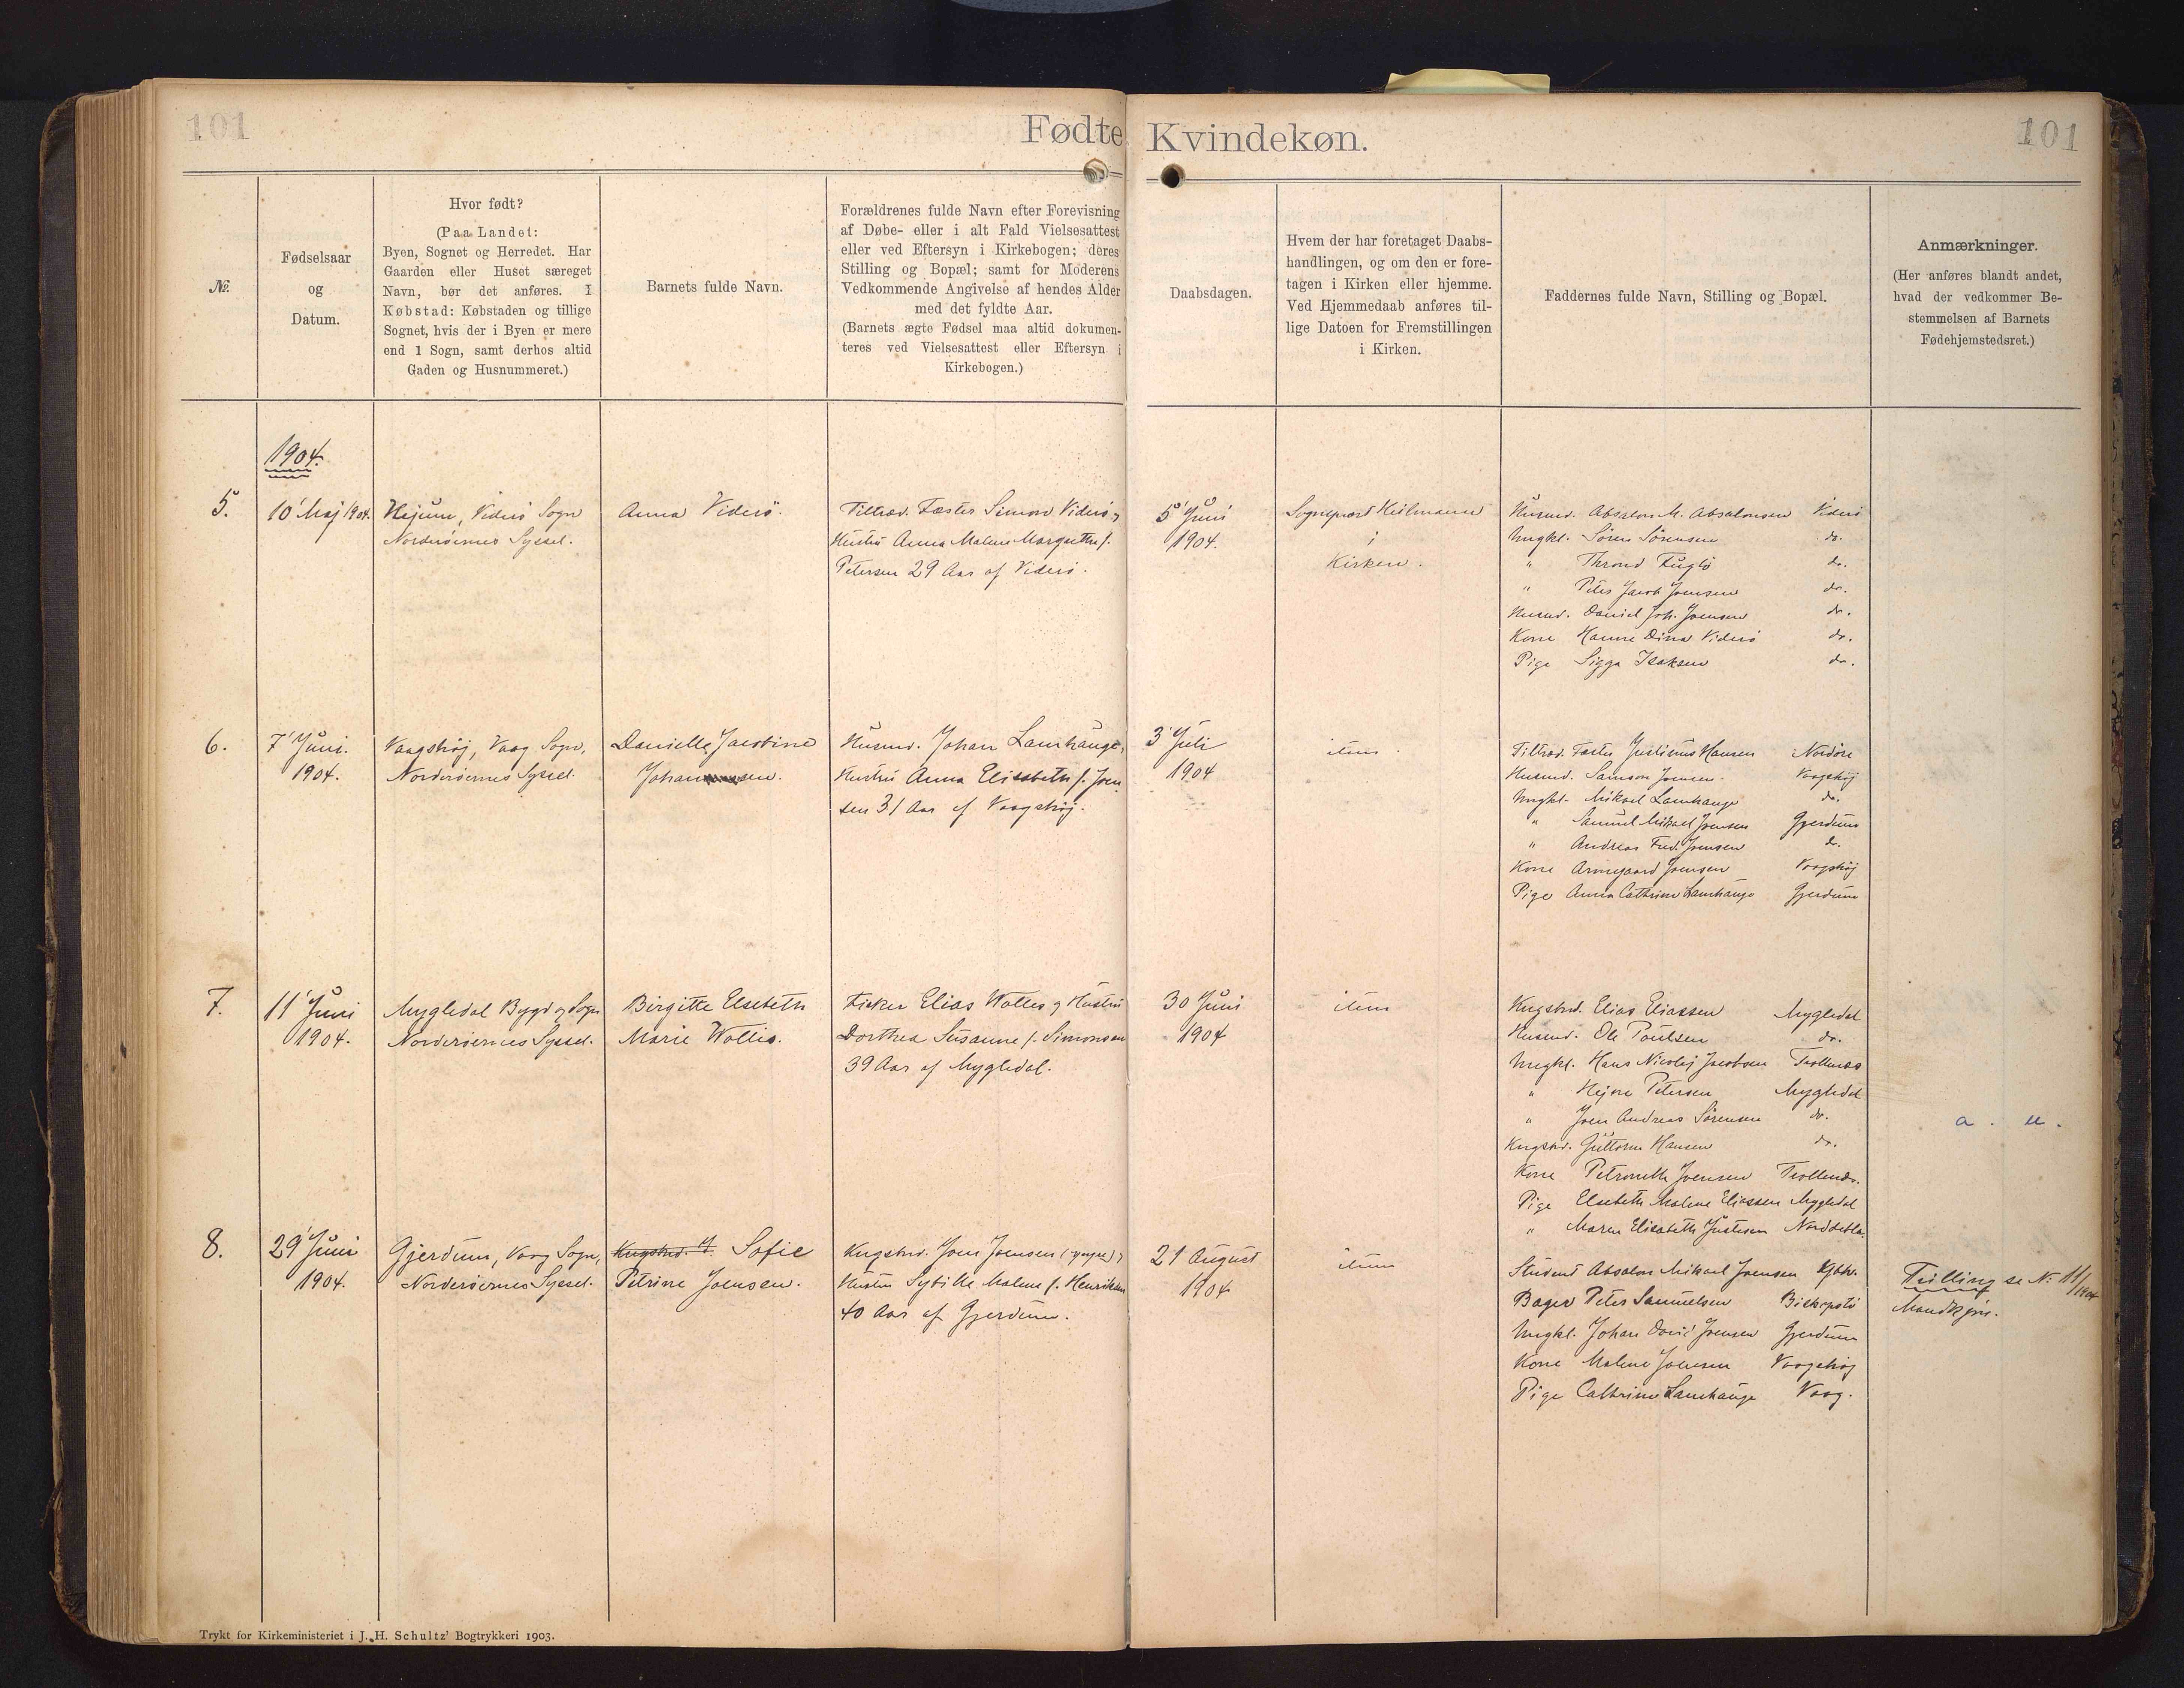 101
Fødte Kvindekøn.
101
№.
Fødselsaar
og
Datum.
Hvor født?
(Paa Landet:
Byen, Sognet og Herredet. Har
Gaarden eller Huset særeget
Navn, bør det anføres. I
Købstad: Købstaden og tillige
Sognet, hvis der i Byen er mere
end 1 Sogn, samt derhos altid
Gaden og Husnummeret.)
Barnets fulde Navn.
Forældrenes fulde Navn efter Forevisning
af Døbe- eller i alt Fald Vielsesattest
eller ved Eftersyn i Kirkebogen; deres
Stilling og Bopæl; samt for Moderens
Vedkommende Angivelse af hendes Alder
med det fyldte Aar.
(Barnets ægte Fødsel maa altid dokumen-
teres ved Vielsesattest eller Eftersyn i
Kirkebogen.)
Daabsdagen.
Hvem der har foretaget Daabs-
handlingen, og om den er fore-
tagen i Kirken eller hjemme.
Ved Hjemmedaab anføres til-
lige Datoen for Fremstillingen
i Kirken.
Faddernes fulde Navn, Stilling og Bopæl.
Anmærkninger.
(Her anføres blandt andet,
hvad der vedkommer Be-
stemmelsen af Barnets
Fødehjemstedsret.)
1904.
5.
10' Maj 1904.
Viderø Sogn
Norderøernes Syssel.
Anna Viderø.
Tiltræd. Fæster Simon Viderø,
Hustru Anna Malene Margrethe f.
Petersen 29 Aar af Viderø.
5' Juni
1904.
Sognepræst Heilmann
i
Kirken.
Husmd. Absalon M. Absalonsen Viderø
Ungkl. Sören Sörensen do.
" Thrond Fuglö do.
" Peter Jacob Joensen do.
Husmd. Daniel Joh. Joensen do.
Kone Hanne Dina Viderø do.
Pige Sigga Isaksen do.
6.
7' Juni.
1904.
Vaagshøj, Vaag Sogn,
Norderøernes Syssel.
Danielle Jacobine
Husmd. Johan Lamhauge,
Hustru Anna Elisabeth f. Joen
sen 31 Aar af Vaagshøj.
3' Juli
1904
item.
Tiltræd. Fæster Justinus Hansen Nordøre
Husmd. Samson Joensen. Vaagshøj
Ungkl. Mikael Lamhauge do.
" Samuel Mikael Joensen Gjerdum
" Andreas Fred. Joensen do.
Kone Armgaard Joensen Vaagshøj
Pige Anna Cathrine Lamhauge Gjerdum
7.
11' Juni
1904.
Mygledal Bygd og Sogn
Norderøernes Syssel.
Birgitte Elsebeth
Marie Wollis.
Fisker Elias Wolles og Hustru
Dorthea Susanne f. Simonsen
39 Aar af Mygledal.
30 Juni
1904
item
Kngsbd. Elias Eliassen Mygledal
Husmd. Ole Poulsen do.
Ungkl. Hans Nicolaj Jacobsen Trollenæs
" Hejne Petersen Mygledal
" Joen Andreas Sörensen do.
Kngsbd. Guttorm Hansen do.
Kone Petronella Joensen Trollenæs.
Pige Elsebeth Malene Eliassen Mygledal
" Maren Elisabeth Justesen
a. u.
8.
29' Juni
1904.
Gjerdum, Vaag Sogn,
Norderøernes Syssel.
Kngsbd. J. Sofie
Petrine Joensen.
Kngsbd. Joen Joensen (yngre),
Hustru Sybille Malene f. Henriksen
40 Aar af Gjerdum.
21 August
1904
item
Student Absalon Mikael Joensen Kjbhv.
Bager Peter Samuelsen Biskopstö
Ungkl. Johan David Joensen Gjerdum
Kone Malene Joensen Vaagshøj
Pige Cathrine Lamhauge Vaag.
Tvilling se № 11/1904
Mandkjøn.
Trykt for Kirkeministeriet i J. H. Schultz' Bogtrykkeri 1903.